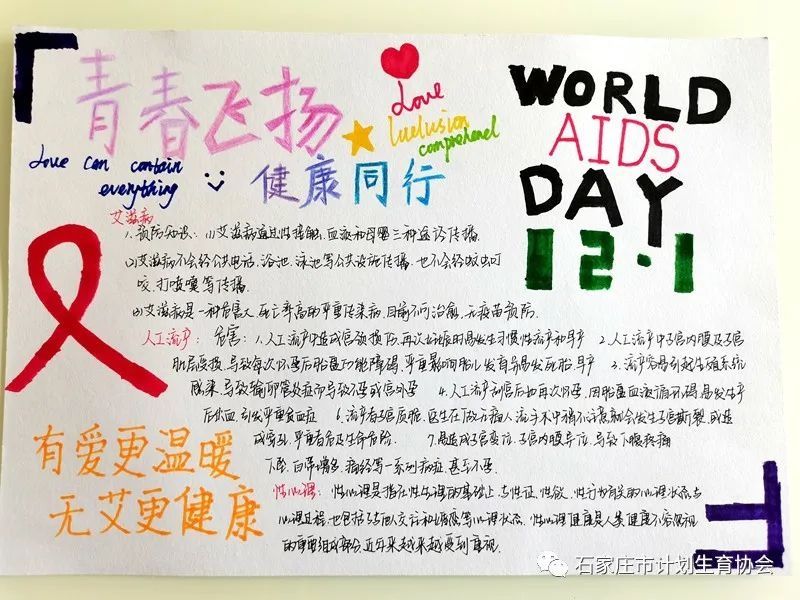 青春飞扬
Love
Luclusion
comprehend
WORLD
AIDS
DAY
12·1
Love can contain
everything
健康同行
艾滋病
1、预防知识：(1)艾滋病通过性接触、血液和母婴三种途径传播.
(2)艾滋病不会经公共电话、浴池、泳池等公共设施传播.也不会经蚊虫叮
咬、打喷嚏等传播.
(3)艾滋病是一种危害大、死亡率高的严重传染病,目前不可治愈,无疫苗预防.
人工流产：危害：1、人工流产中造成宫颈损伤,再次妊娠时易发生习惯性流产和早产 2、人工流产中子宫内膜及子宫
肌层受损,导致每次怀孕后胎盘功能障碍,严重影响胎儿发育易发死胎、早产 3、流产容易引起生殖系统
感染,导致输卵管炎症而导致不孕或宫外孕 4、人工流产刮宫后如再次怀孕,因胎盘血液循环碍易发生产
后出血,引发严重贫血症 6、流产者子宫质脆,医生在做无痛人流手术中稍不注意就会发生子宫断裂,或造
成穿孔,严重者危及生命危险. 7、易造成子宫变位,子宫内膜异位,导致下腹疼痛
下坠、白带增多,痛经等一系列病症,甚至不孕.
性心理：性心理是指在性生理的基础上,与性征、性欲、性行为有关的心理状态与
心理过程,也包括了与他人交往和婚恋等心理状态.性心理健康是人类健康不容忽视
的重要组成部分,近年来越来越受到重视.
有爱更温暖
无艾更健康
石家庄市计划生育协会